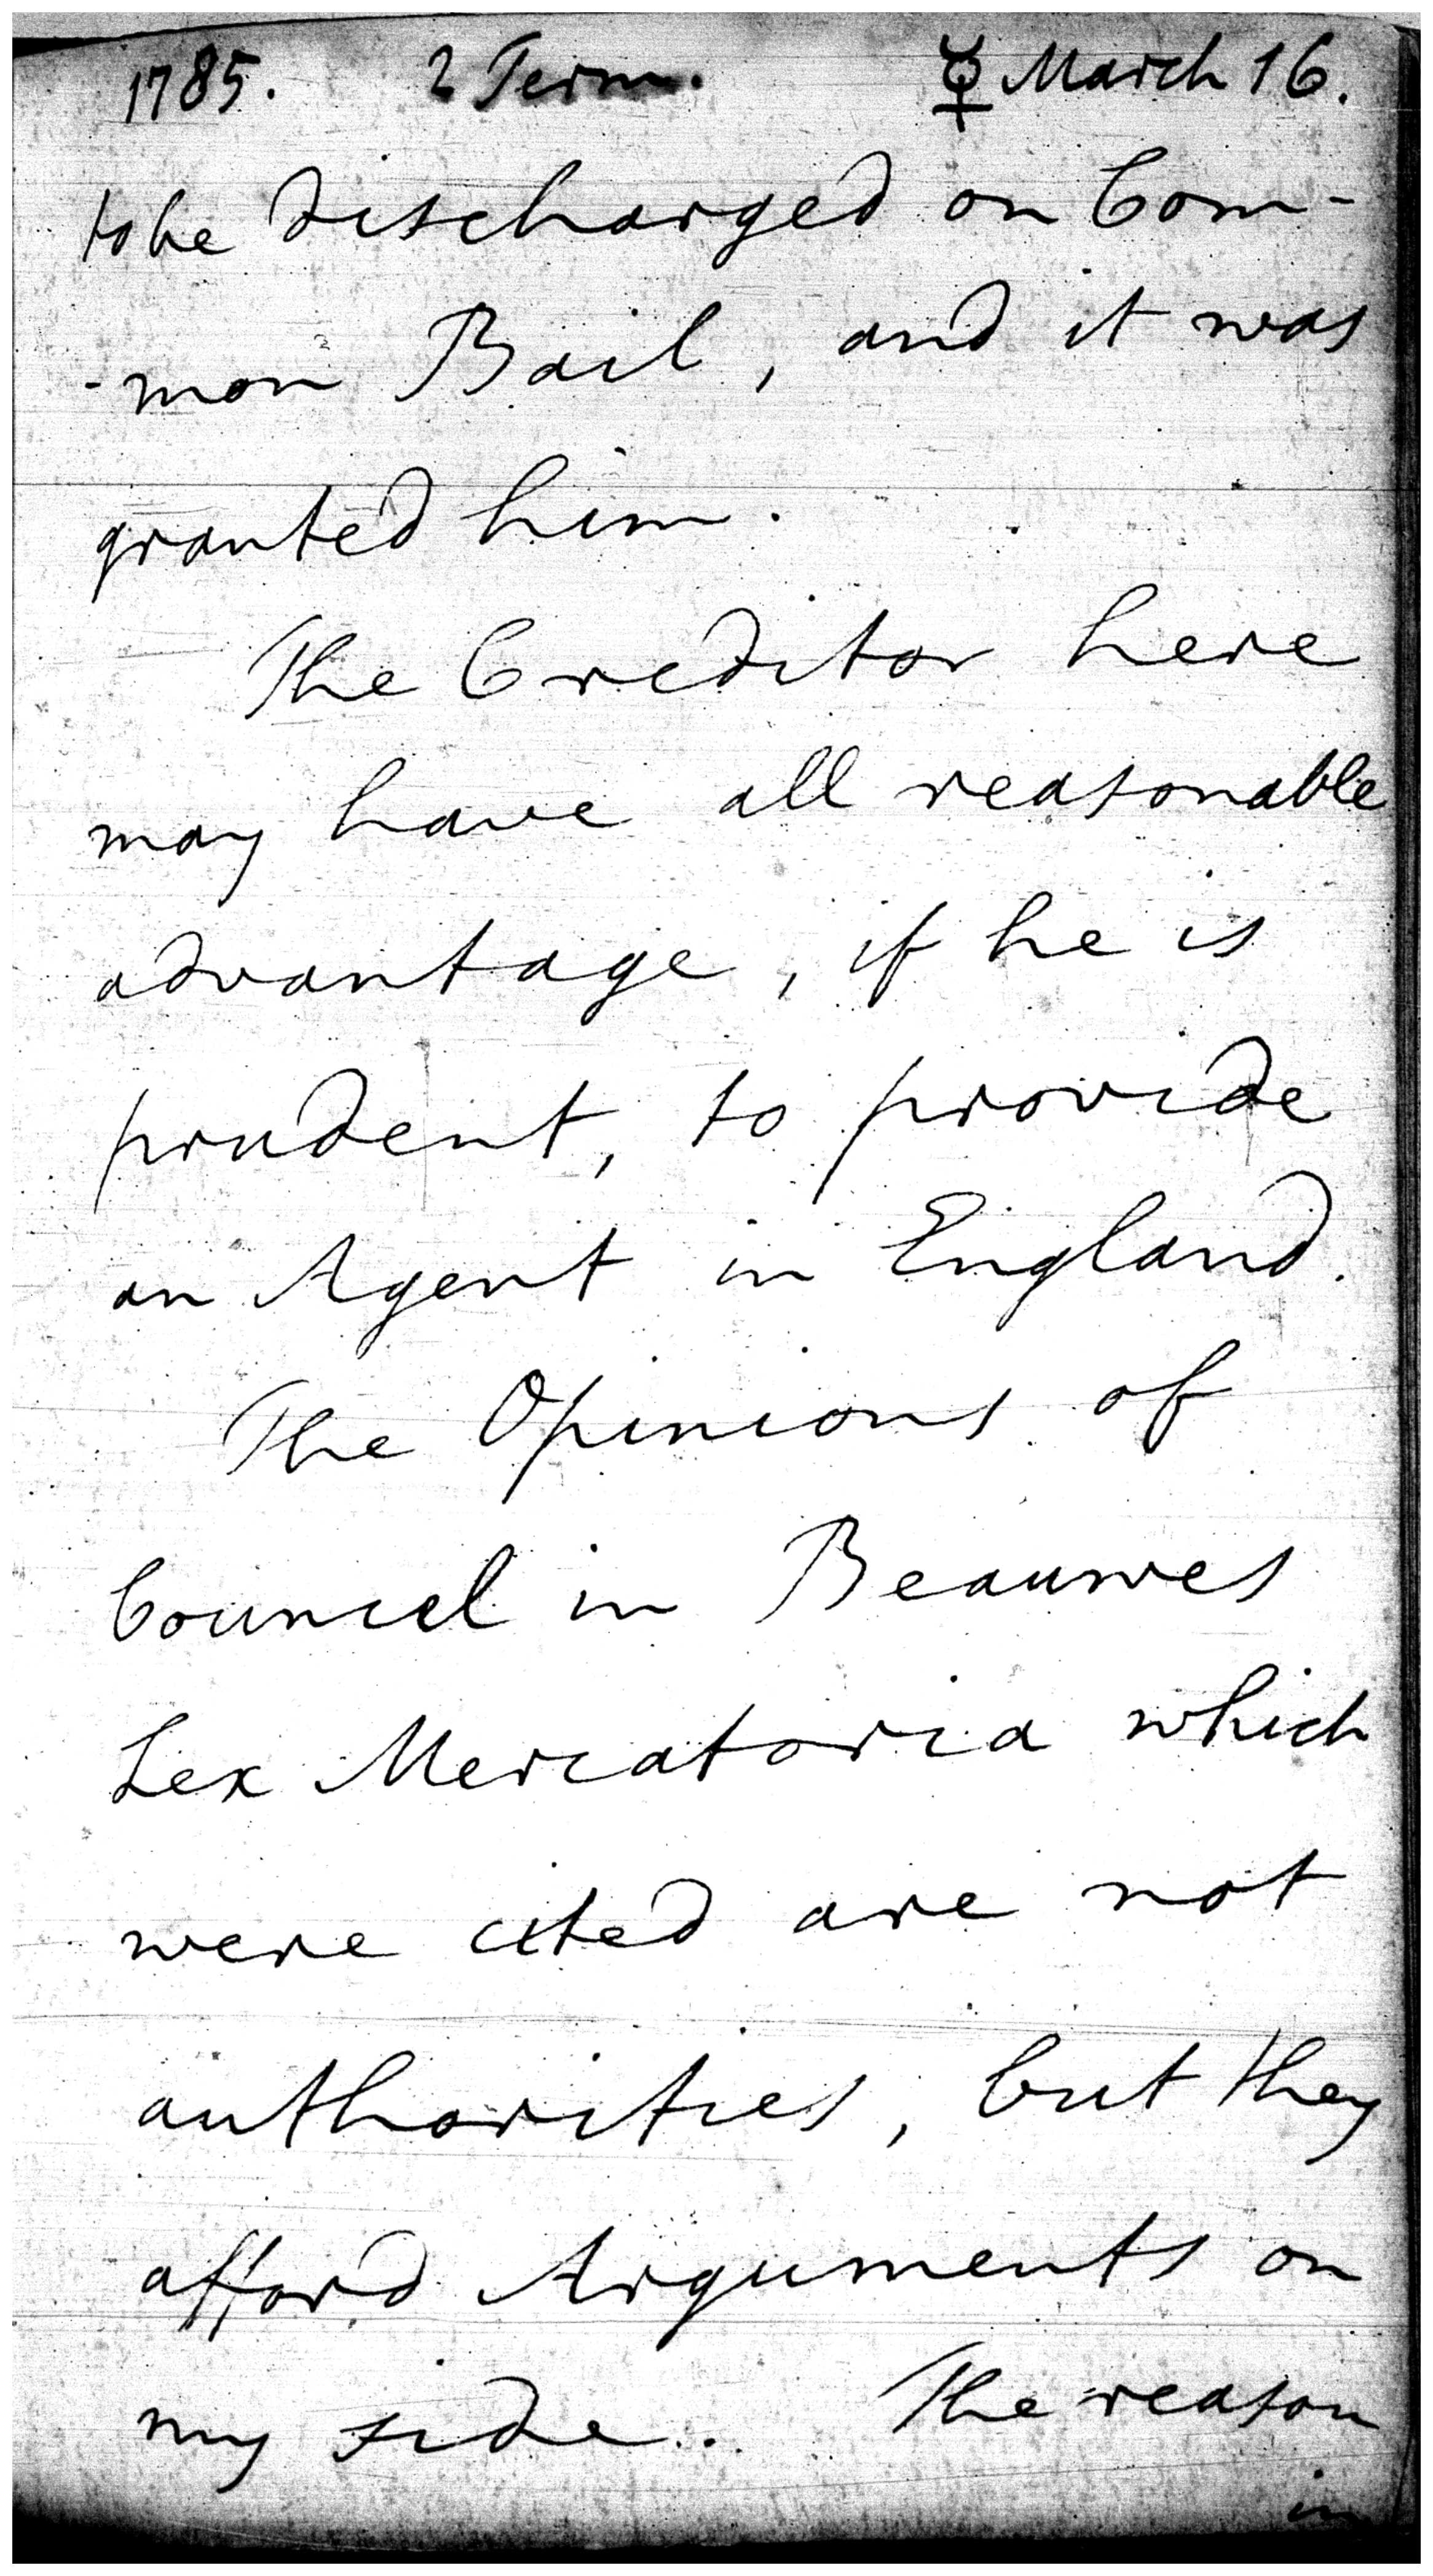 1785. 2 Term. ☿ March 16.
to be discharged on Com-
-mon Bail, and it was
granted him.
The Creditor here
may have all reasonable
advantage, if he is
prudent, to provide
an Agent in England.
The Opinions of
Councel in Beauwes
Lex Mercatoria which
were cited are not
authorities, but they
afford Arguments on
my side. The reason
in